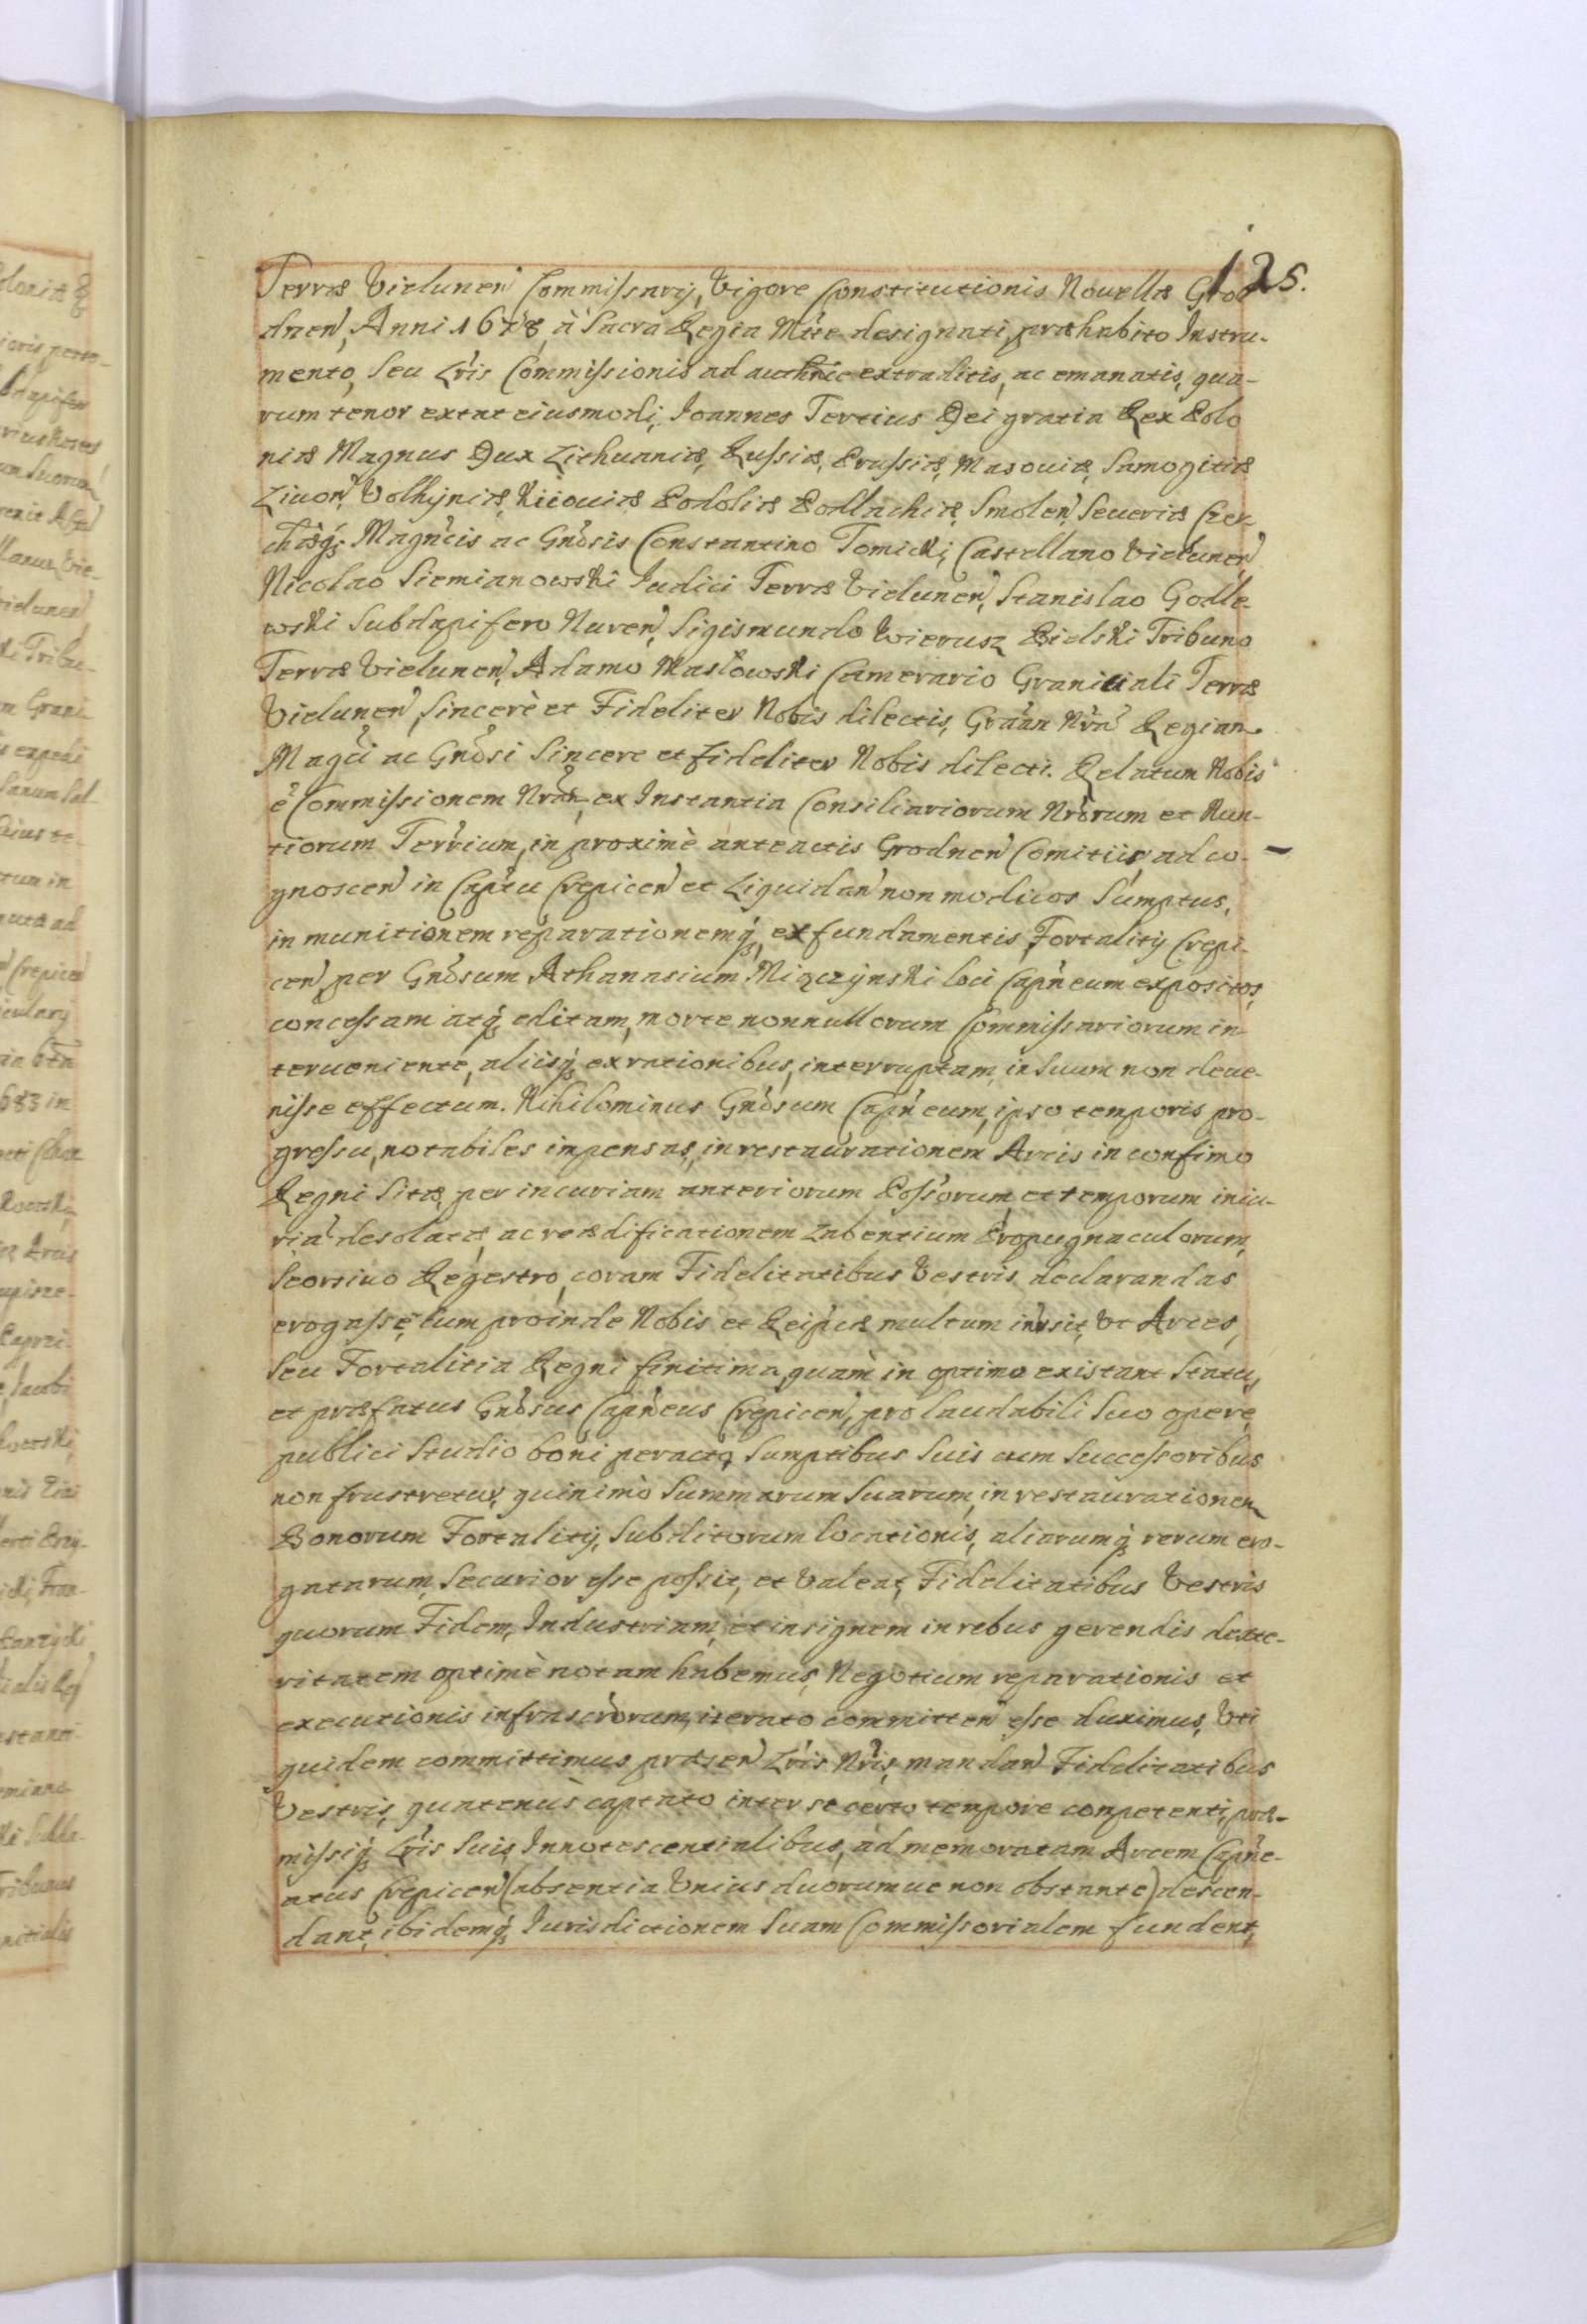 125.
Terræ Vielunen̄ Commissarij, Vigore Constitutionis Nouellæ Grod
dnen̄, Anni 1678, à Sacra Regia Mtte designati, præhabito Instru-
mento, seu Lr̄is Commissionis ad authn̄ce extraditis, ac emanatis, qua-
rum tenor extat eiusmodi, Ioannes Tertius Dei gratia Rex Polo
niæ Magnus Dux Lithuaniæ, Russiæ, Prussiæ, Masouiæ, Samogitiæ
Liuon̄, Volhyniæ, Kiiouiæ Podoliæ Podlachiæ, Smolen̄, Seueriæ Czer
chōq̨. Magn̄cis ac Gn̄osis Constantino Tomicki, Castellano Vielunen̄
Nicolao Siemianowski Iudici Terræ Vielunen̄, Stanislao Godle-
wski Subdapifero Nuren̄, Sigismundo Wierusz Bielski Tribuno
Terræ Vielunen̄, Adamo Masłowski Camerario Graniciali Terræ
Vielunen̄, sincerè et Fideliter Nobis dilectis, Grāan Nrā Regian.
Magci ac Gn̄osi Sincere et fideliter Nobis dilecti. Relatum Nobis
ē Commissionem Nram̄, ex Instantia Consiliariorum Nrōrum et Nun-
tiorum Terr̄ium, in proximè anteactis Grodnen̄ Comitiis, ad co-
gnoscen̄ in Cap̄tu Crepicen̄ et Liquidan̄ non modicos Sumptus,
in munitionem reparationemq̨, ex fundamentis, Fortalitij Crepi-
cen̄, per Gn̄osum Athanasium Miączÿnski loci Capn̄eum expositos,
concessam atq̨, editam, morte nonnullorum Commissariorum in-
terueniente, aliisq̨, ex rationibus, interruptam, in suum non deue-
nisse effectum. Nihilominus Gn̄osum Capn̄eum, ipso temporis pro-
gressu, notabiles impensas, in restaurationem Arcis in confinio
Regni sitæ, per incuriam anteriorum Poss̄orum, et temporum iniu-
ria desolatæ, ac reædificationem Labentium Propugnaculorum,
Seorsiuo Regestro, coram Fidelitatibus Vestris declarandas
erogasse, cum proinde Nobis et Reip̄cæ multum insit, Vt Arces,
seu Fortalitia Regni finitima, quam in optimo existant Statu,
et præfatus Gn̄osus Capn̄eus Crepicen̄, pro laudabili suo opere,
publici Studio boni peracto, Sumptibus Suis cum Successoribus
non frustretur, quinimò Summarum Suarum, in restaurationem
Bonorum Fortalitij, Subditorum locationis, aliarumq̨, rerum ero-
gatarum, Securior esse possit, et Valeat, Fidelitatibus Vestris
quorum Fidem, Industriam, et insignem in rebus gerendis dexte-
ritatem optimè notam habemus, Negotium reparationis et
executionis infrascrōrum, iterato committen̄ esse duximus, Vti
quidem committimus præsen̄ Lr̄is Nr̄is, mandan̄ Fidelitatibus
Vestris, quatenùs captato inter se certo tempore competenti, præ-
missiq̨, Lr̄is Suis Innotescentialibus, ad memoratam Arcem Capn̄e-
atus Crepicen̄ (absentia Vnius duorumue non obstante) descen-
dant, ibidemq̨, Iurisdictionem Suam Commissorialem fundent,